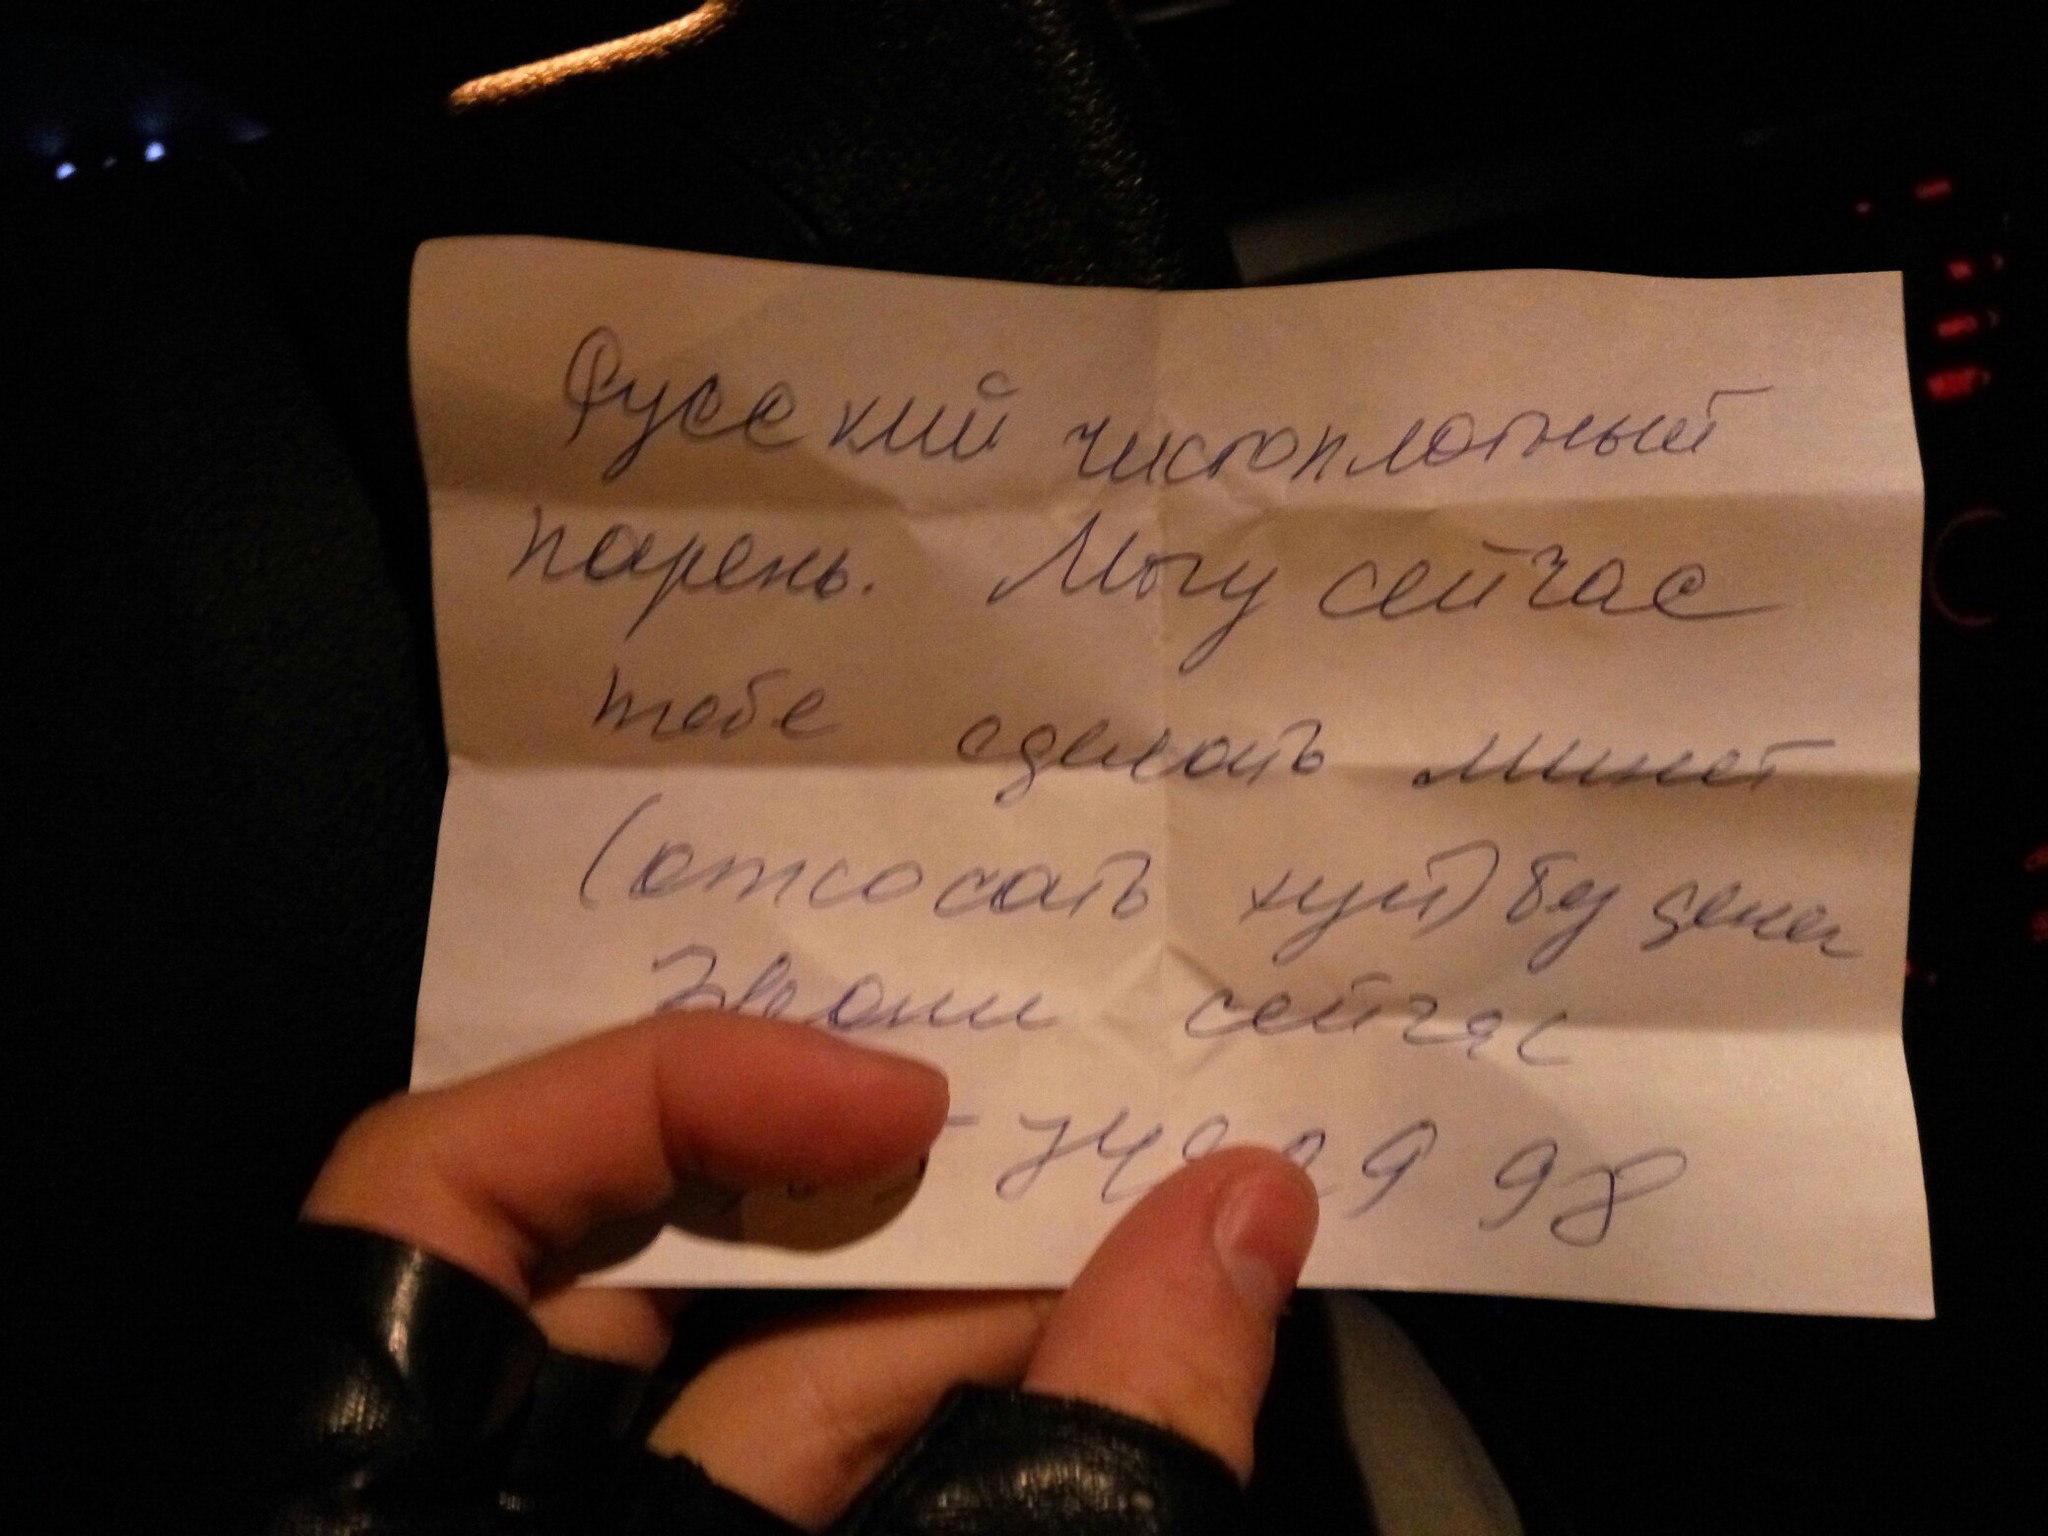 Русский чистоплотный
парень. Могу сейчас
тебе сделать минет
(отсосать хуй) бу денег
Звони сейчас
98